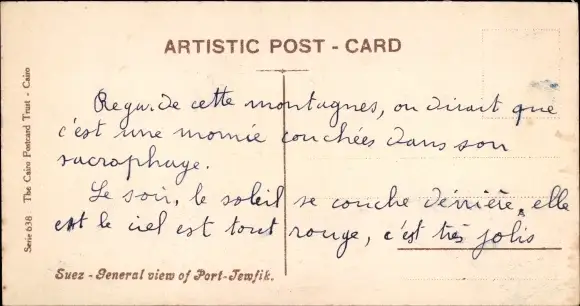 ARTISTIC POST - CARD
Regarde cette montagnes, on dirait que
c'est une momie couchées dans son
sacrophage.
Le soir, le soleil se couche dérrière, elle
et le ciel est tout rouge, c'est très jolis
Suez - General view of Port-Tewfik.
Serie 638 The Cairo Postcard Trust - Cairo